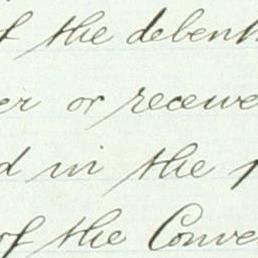 f the debent
er or receive
d in the p
of the Conve